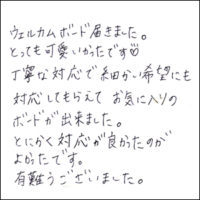 ウェルカムボード届きました。
とっても可愛いかったです♡
丁寧な対応で細かい希望にも
対応してもらえて お気に入りの
ボードが出来ました。
とにかく対応が良かったのが
よかったです。
有難うございました。